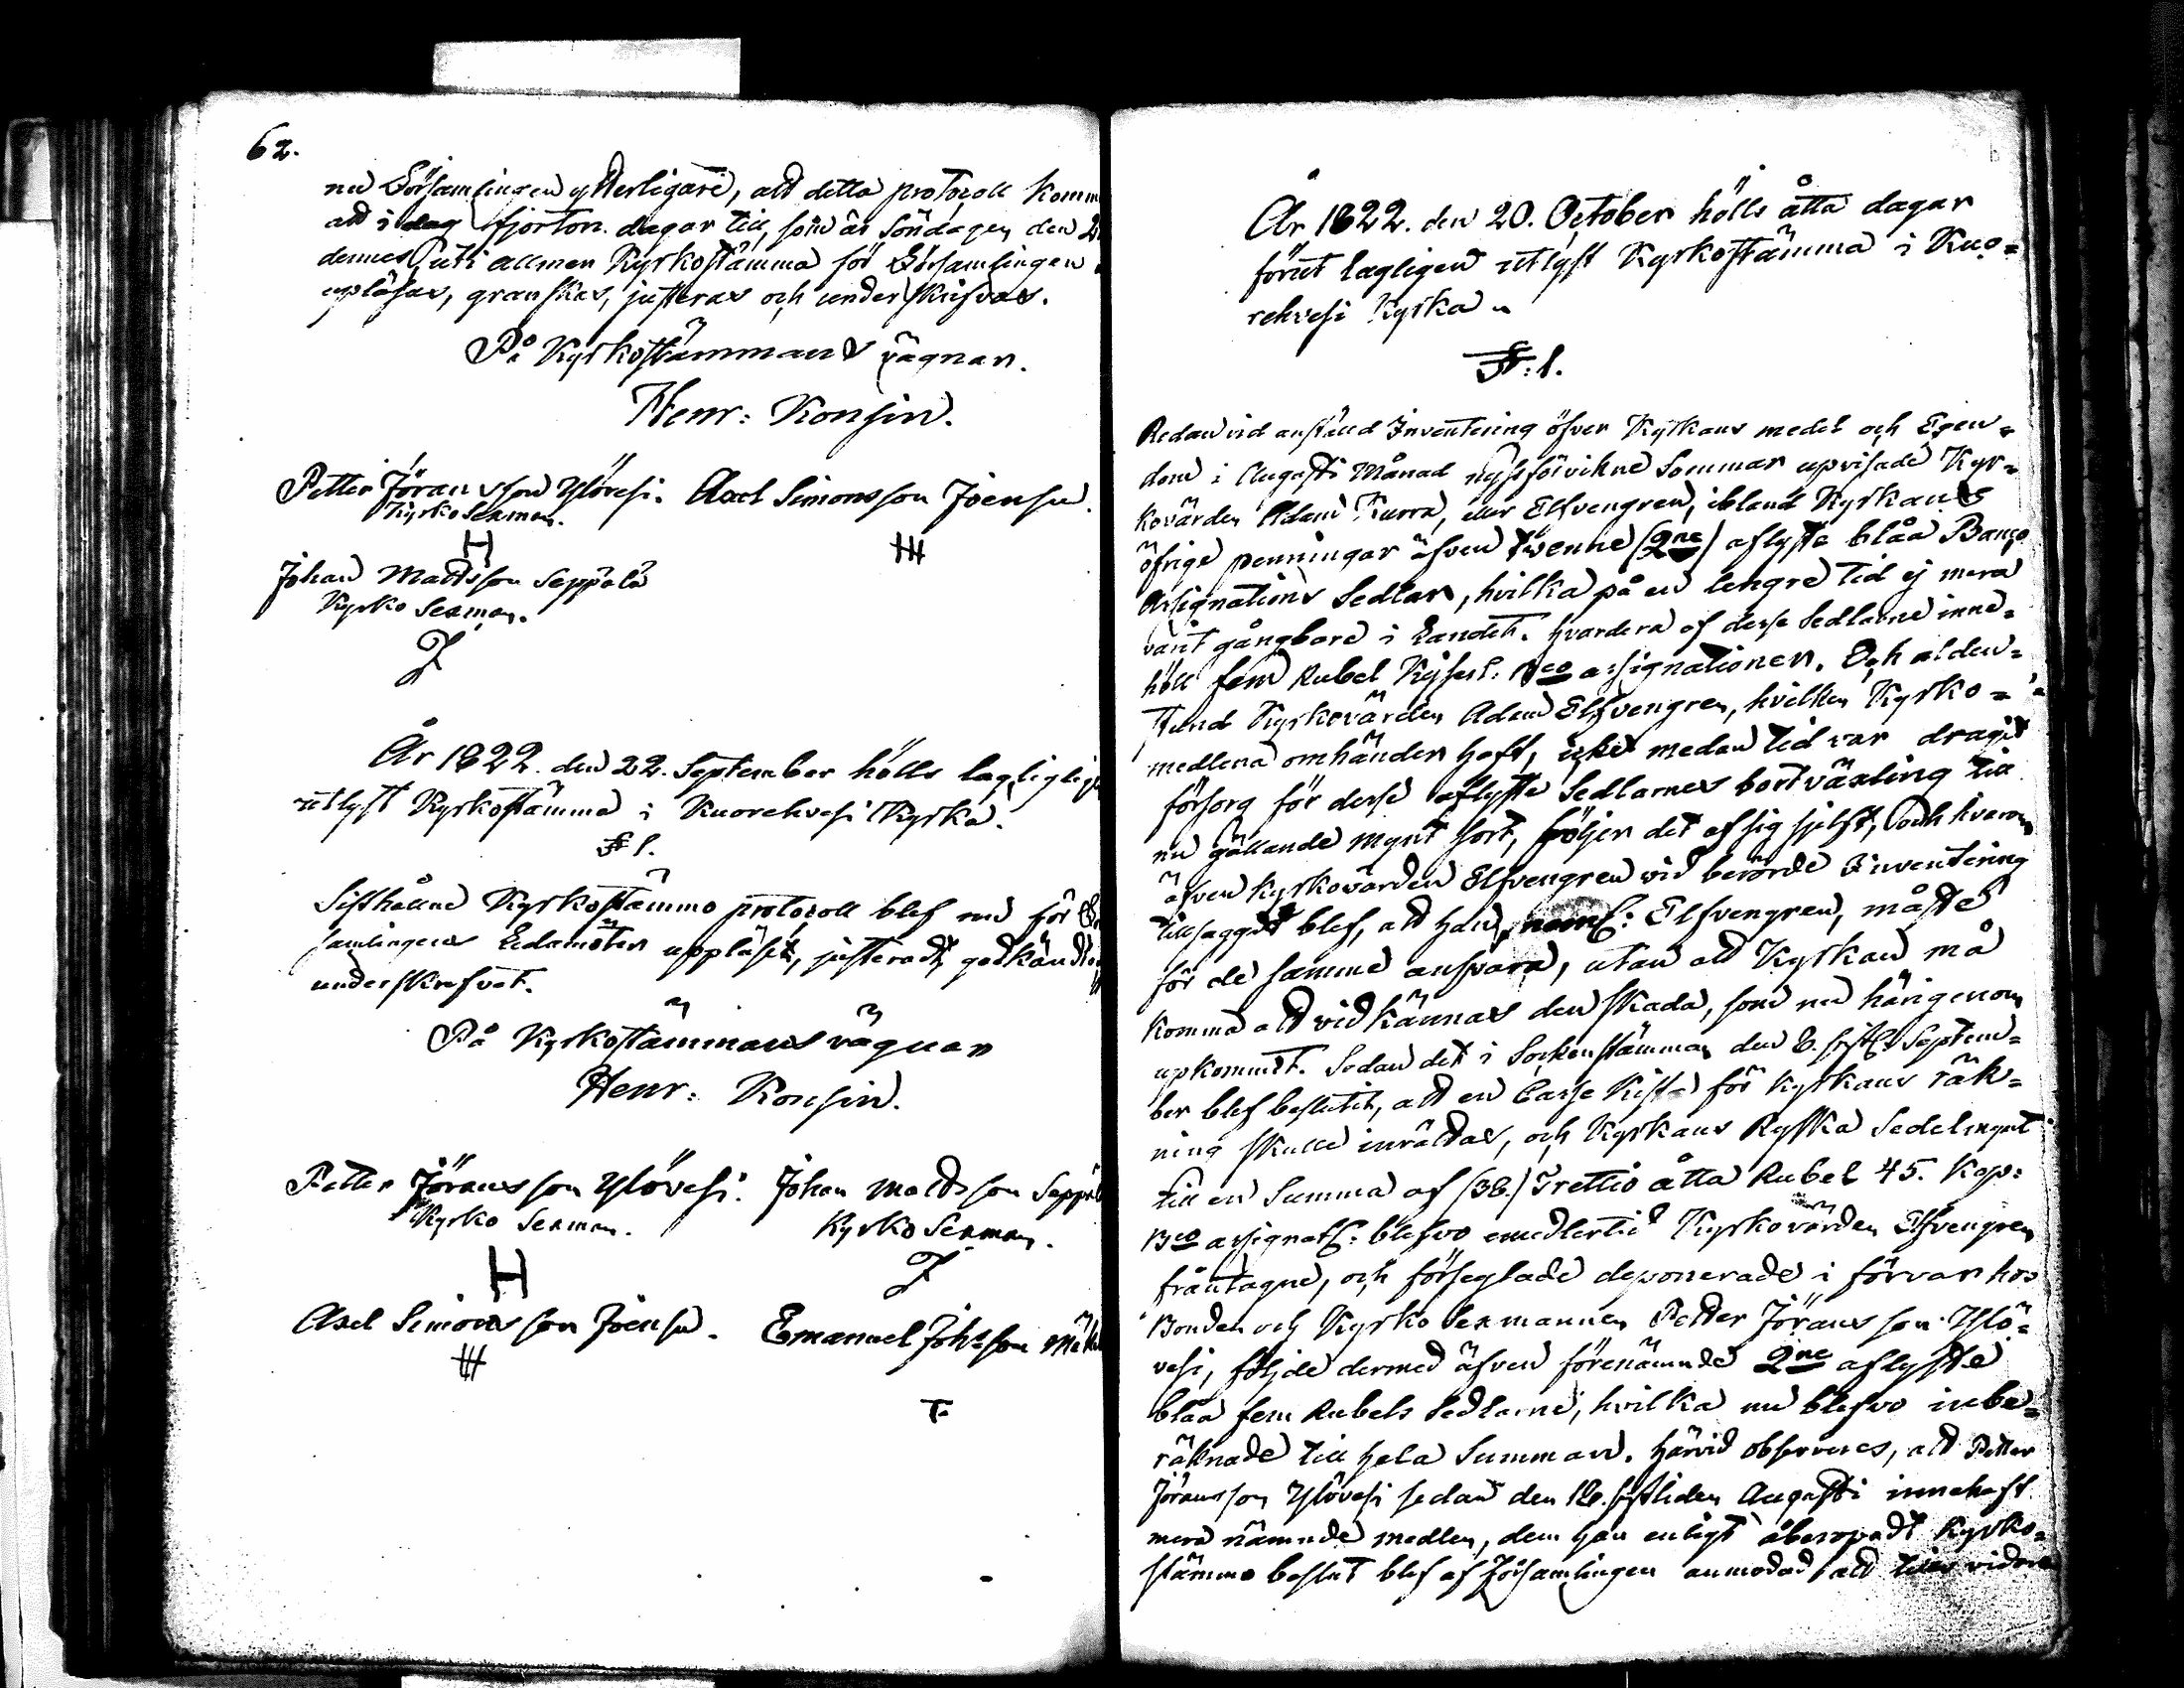 62.
nu Församlingen ytterligare, att detta protocoll komm
att i dag fjorton dagar till, som är Söndagen den 2
dennes, uti allmen Kyrkostämma för Församlingen
upläsas, granskas, justeras och underskrifvas.
På Kyrkostämmans vägnar.
Henr: Konsin.
Petter Jöransson Ylövesi. Axel Simonsson Joensu.
Kyrko Sexman.
H
Johan Mattsson Seppälä
Kyrko Sexman.
År 1822. den 22. September hölls lagligligen
utlyst Kyrkostämma i Kuorehvesi Kyrka.
§ 1.
Sisthållne Kyrkostämmo protocoll blef nu för För
samlingens Ledamöter uppläsit, justeradt, godkändt
underskrefvet.
På Kyrkostämmans vägnar
Henr: Konsin.
Petter Jöransson Ylövesi. Johan Mattsson Seppäl
Kyrko Sexman. Kyrko Sexman.
H
Axel Simonsson Joensu. Emanuel Johsson
T
År 1822. den 20. October hölls åtta dagar
förut lagligen utlyst Kyrkostämma i Kuo=
rehvesi Kyrka
§: 1.
Redan vid anställd Inventering öfver Kyrkans medel och Egen=
dom i Augusti Månad nyssförvikne Sommar upvisade Kyr=
kovärden Adam Kurra, eller Elfvengren, ibland Kyrkans
öfrige penningar äfven tvenne (2ne) aflyste blåa Banco
Assignations Sedlar, hvilka på en lengre tid ej mera
varit gångbare i Landet. Hvardera af desse Sedlarne inne=
höll fem Rubel Rysst. Bco assignationer. Och alden=
stund Kyrkovärden Adam Elfvengren, hvilken Kyrko=
medlena omhänder haft, icke medan tid var dragit
försorg för desse aflyste Sedlarnes bortväxling till
nu gällande mynt sort, följer det af sig sjelft, och hvarom
äfven Kyrkovärden Elfvengren vid berörde Inventering
tillsaggdt blef, att han, neml: Elfvengren, måste
för de samme ansvara, utan att Kyrkan må
komma att vidkännas den skada, som nu härigenom
upkommit. Sedan det i Sockenstämman den 8. sistl. Septem=
ber blef beslutit, att en Casse Kista för Kyrkans räk=
ning skulle inrättas, och Kyrkans Ryska Sedelmynt
till en Summa af (38.) Trettio åtta Rubel 45. Kop:
Bco assignat: blefvo emedlertid Kyrkovärden Elfvengren
fråntagne, och förseglade deponerade i förvar hos
Bonden och Kyrko Sexmannen Petter Jöransson Ylö=
vesi, följde dermed äfven förenämnde 2ne aflyste
blåa fem Rubels Sedlarne, hvilka nu blefvo inbe=
räknade till hela Summan. Härvid observeres, att Petter
Jöransson Ylövesi sedan den 18. sistliden Augusti innehaft
mera nämnde medlen, dem han enligt åberopadt Kyrko=
stämmo beslut blef af Församlingen anmodad att vidare